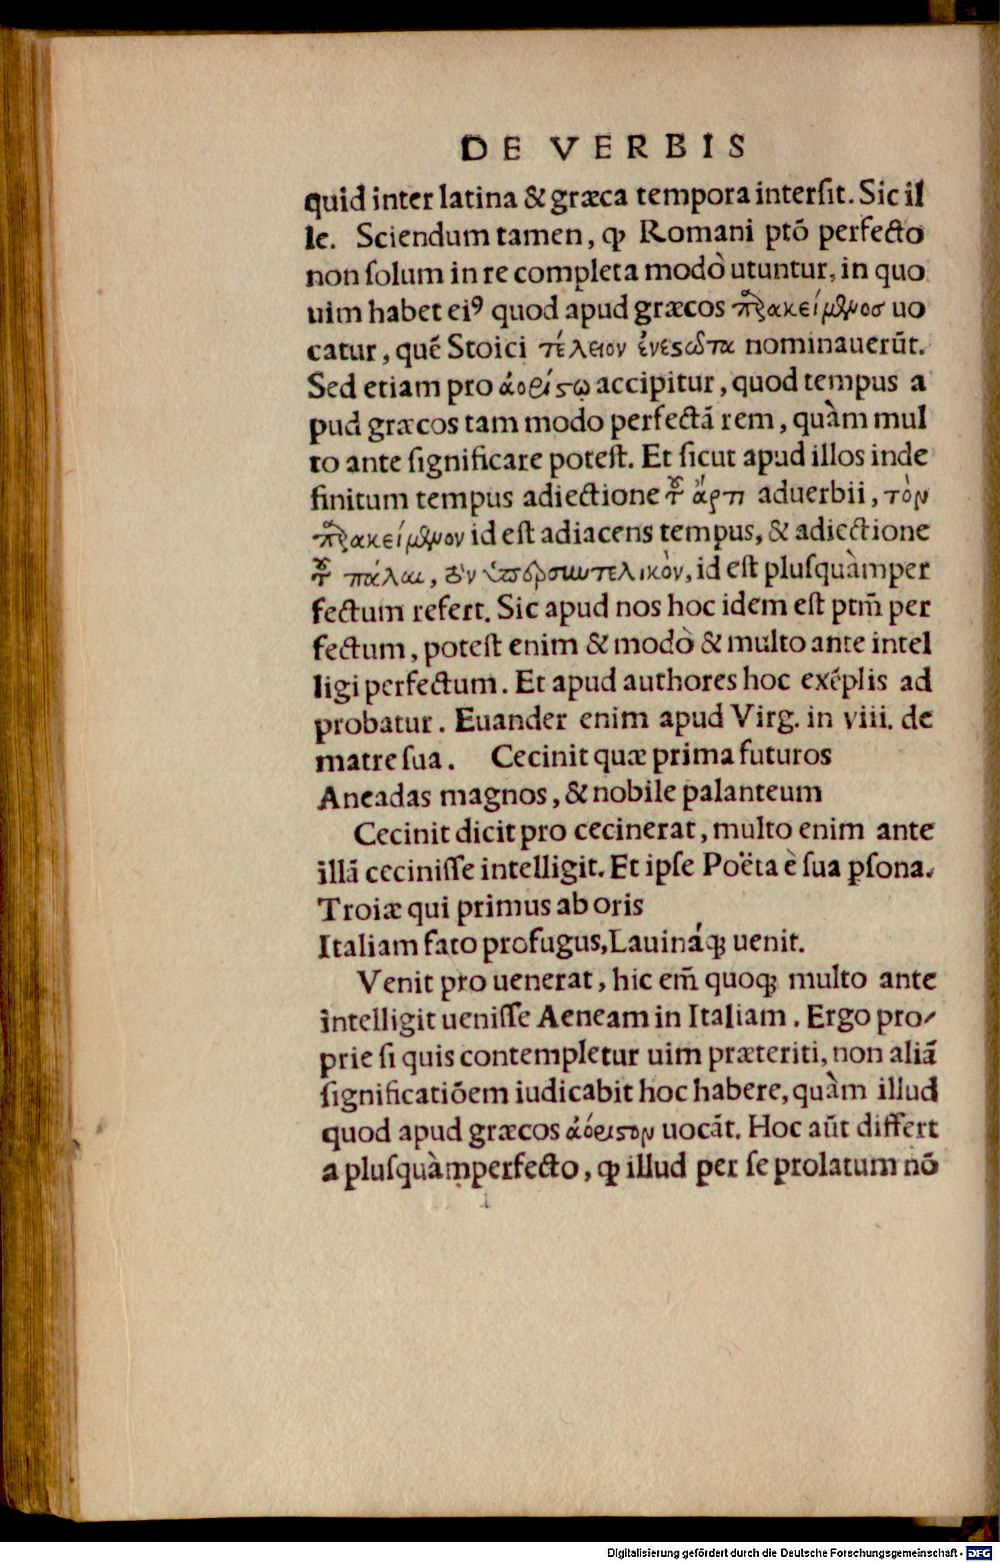 DE VERBIS
quid inter latina & græca tempora intersit. Sic il
le. Sciendum tamen, ꝙ Romani ptõ perfecto
non solum in re completa modò utuntur, in quo
uim habet eiꝰ quod apud græcos παρακείμενοσ uo
catur, quẽ Stoici τέλειον ἐνεςῶτα nominauerũt.
Sed etiam pro ἀορίςῳ accipitur, quod tempus a
pud græcos tam modo perfectã rem, quàm mul
to ante significare potest. Et sicut apud illos inde
finitum tempus adiectione τ͂ ἄρτι aduerbii, τὸν
παρακείμενον id est adiacens tempus, & adiectione
τ͂ πάλαι, τὸν ὑπερσυντελικὸν, id est plusquàmper
fectum refert. Sic apud nos hoc idem est ptm̃ per
fectum, potest enim & modò & multo ante intel
ligi perfectum. Et apud authores hoc exẽplis ad
probatur. Euander enim apud Virg. in viii. de
matre sua. Cecinit quæ prima futuros
Aneadas magnos, & nobile palanteum
Cecinit dicit pro cecinerat, multo enim ante
illã cecinisse intelligit. Et ipse Poëta è sua ꝑsona.
Troiæ qui primus ab oris
Italiam fato profugus, Lauináꝗ; uenit.
Venit pro uenerat, hic em̃ quoꝗ; multo ante
intelligit uenisse Aeneam in Italiam. Ergo pro-
prie si quis contempletur uim præteriti, non aliã
significatiõem iudicabit hoc habere, quàm illud
quod apud græcos ἀόριςον uocãt. Hoc aũt differt
a plusquàmperfecto, ꝙ illud per se prolatum nõ
Digitalisierung gefördert durch die Deutsche Forschungsgemeinschaft - DFG